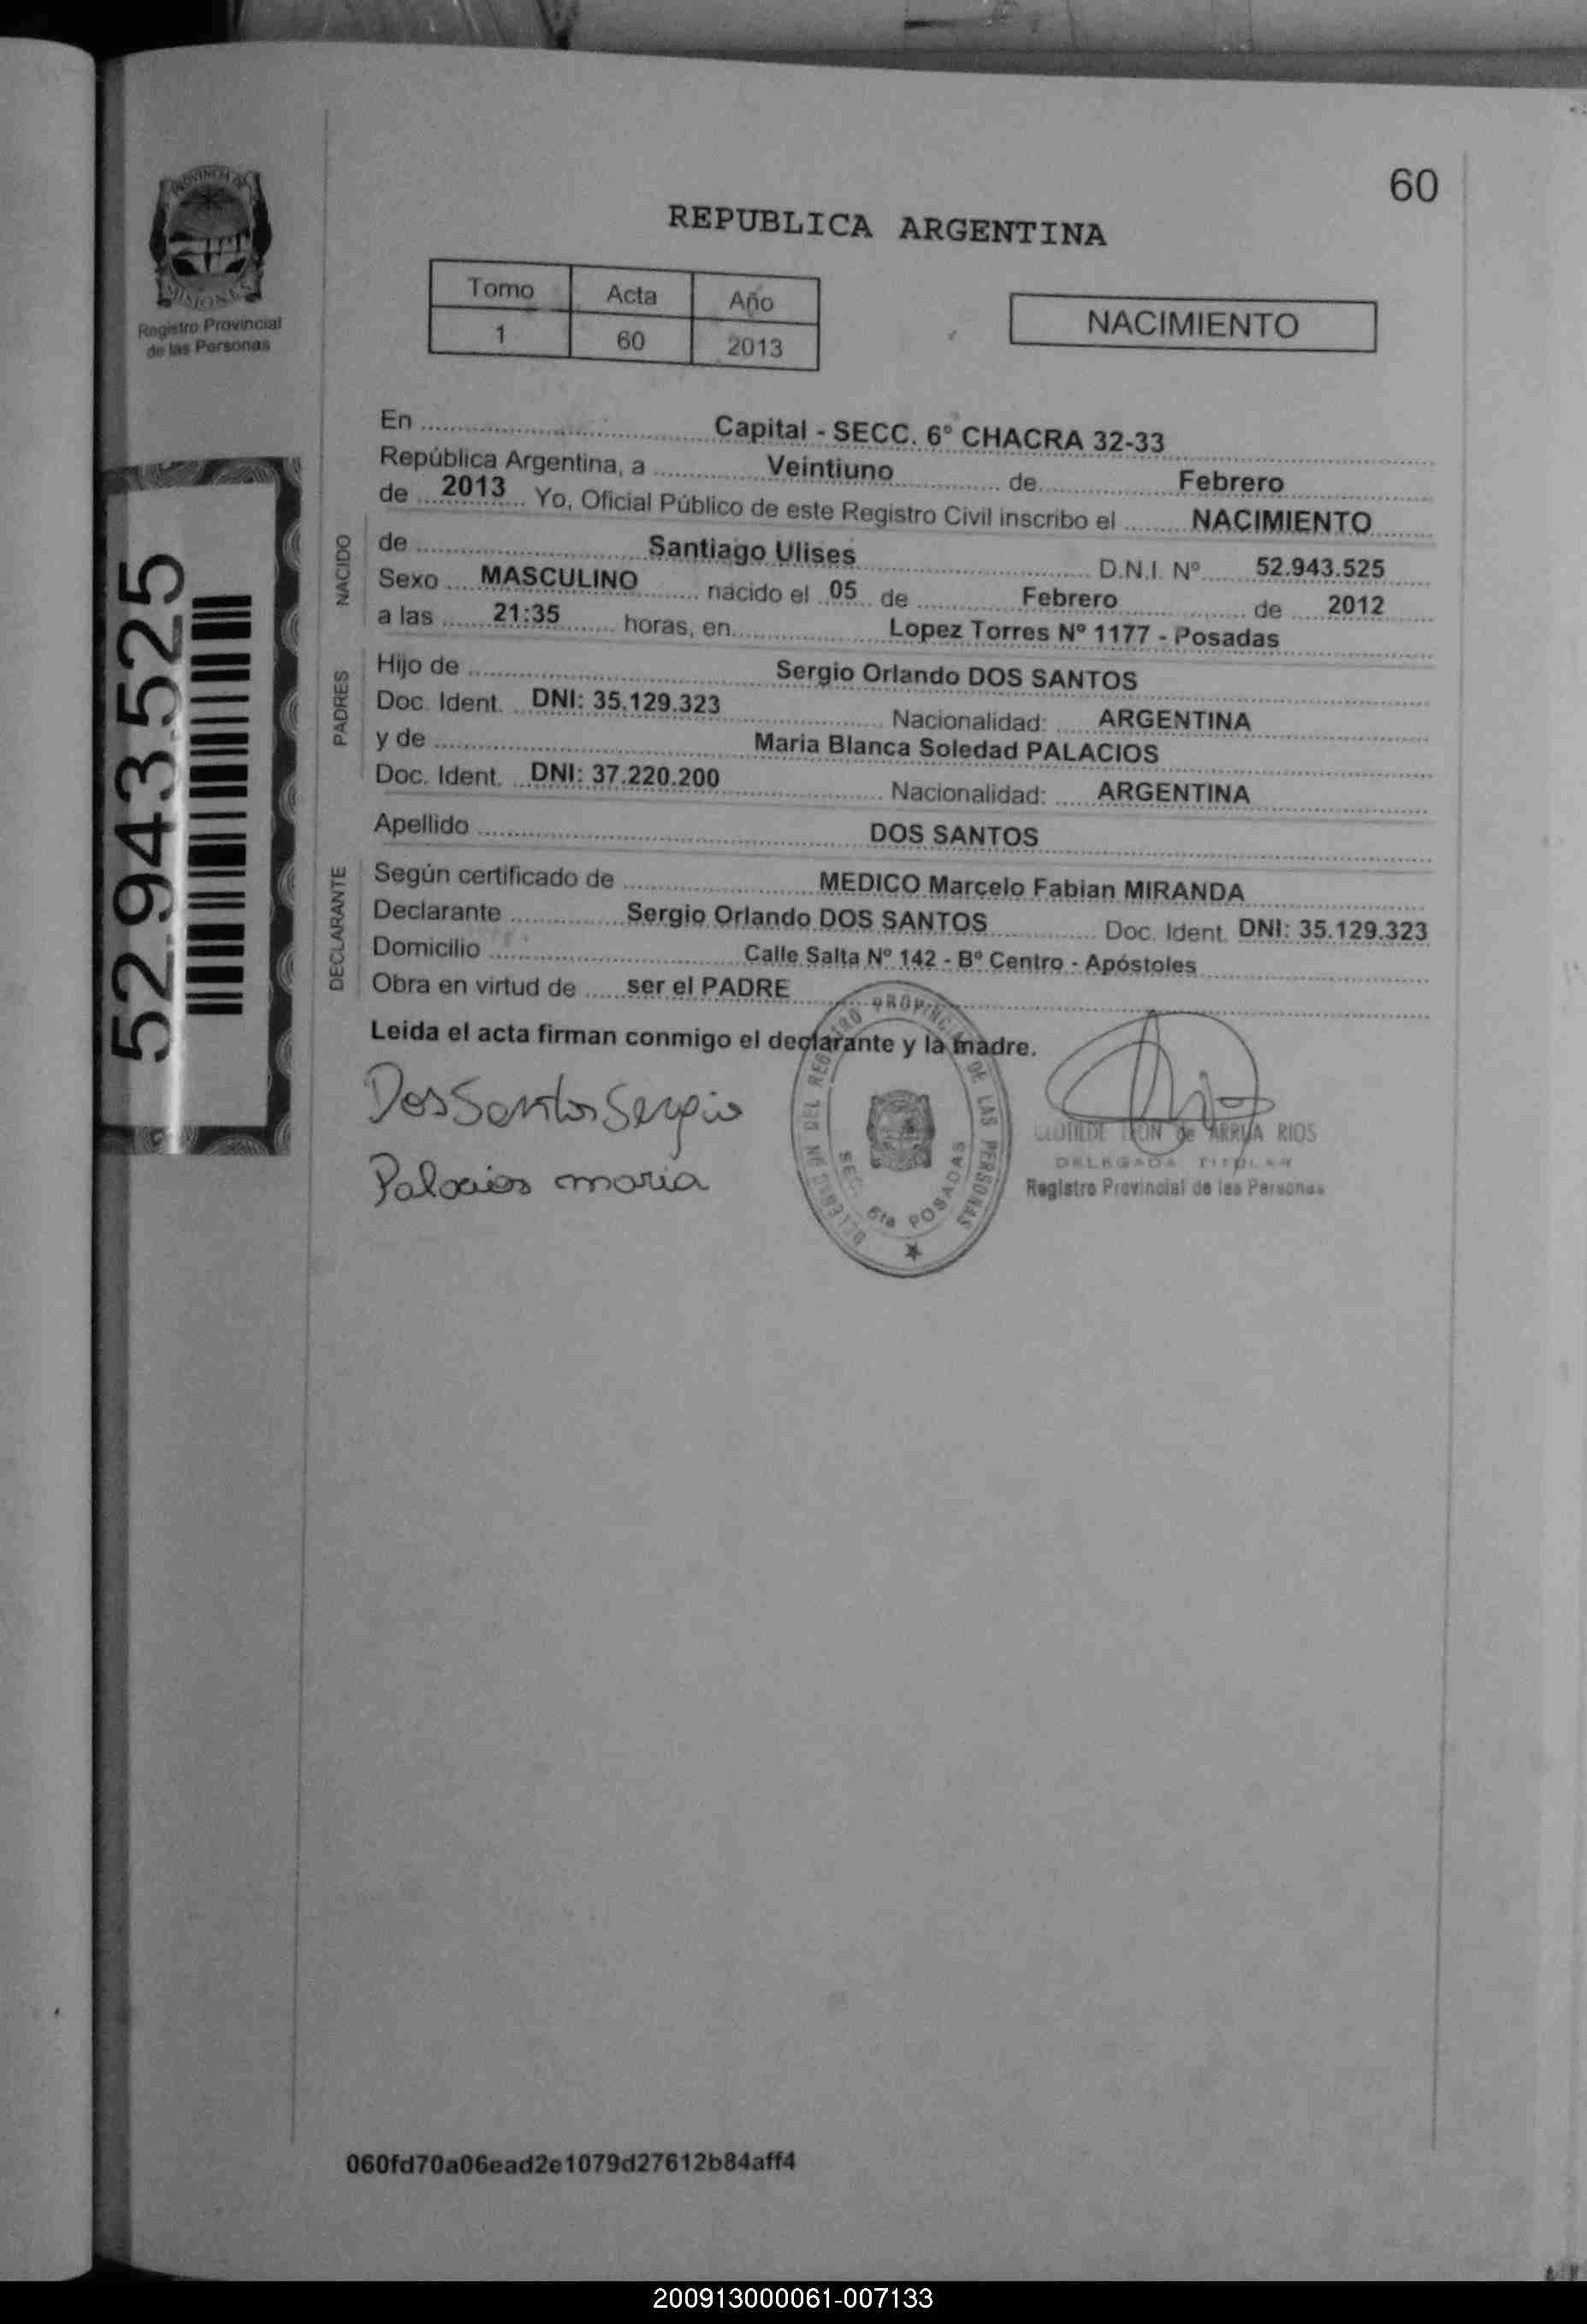 60
REPUBLICA ARGENTINA
PROVINCIA DE
MISIONES
Registro Provincial
de las Personas
Tomo Acta Año
1 60 2013
NACIMIENTO
52.943.525
En Capital - SECC. 6º CHACRA 32-33
República Argentina, a Veintiuno de Febrero
de 2013 Yo, Oficial Público de este Registro Civil inscribo el NACIMIENTO
NACIDO
de Santiago Ulises D.N.I. Nº 52.943.525
Sexo MASCULINO nacido el 05 de Febrero de 2012
a las 21:35 horas, en Lopez Torres Nº 1177 - Posadas
PADRES
Hijo de Sergio Orlando DOS SANTOS
Doc. Ident. DNI: 35.129.323 Nacionalidad: ARGENTINA
y de Maria Blanca Soledad PALACIOS
Doc. Ident. DNI: 37.220.200 Nacionalidad: ARGENTINA
Apellido DOS SANTOS
DECLARANTE
Según certificado de MEDICO Marcelo Fabian MIRANDA
Declarante Sergio Orlando DOS SANTOS Doc. Ident. DNI: 35.129.323
Domicilio Calle Salta Nº 142 - Bº Centro - Apóstoles
Obra en virtud de ser el PADRE
Leida el acta firman conmigo el declarante y la madre.
Dos Santos Sergio
Palacios maria
DEL REGISTRO PROVINCIAL DE LAS PERSONAS
SEC. 6ta POSADAS
CLOTILDE LEON de ARRUA RIOS
DELEGADA TITULAR
Registro Provincial de las Personas
060fd70a06ead2e1079d27612b84aff4
200913000061-007133